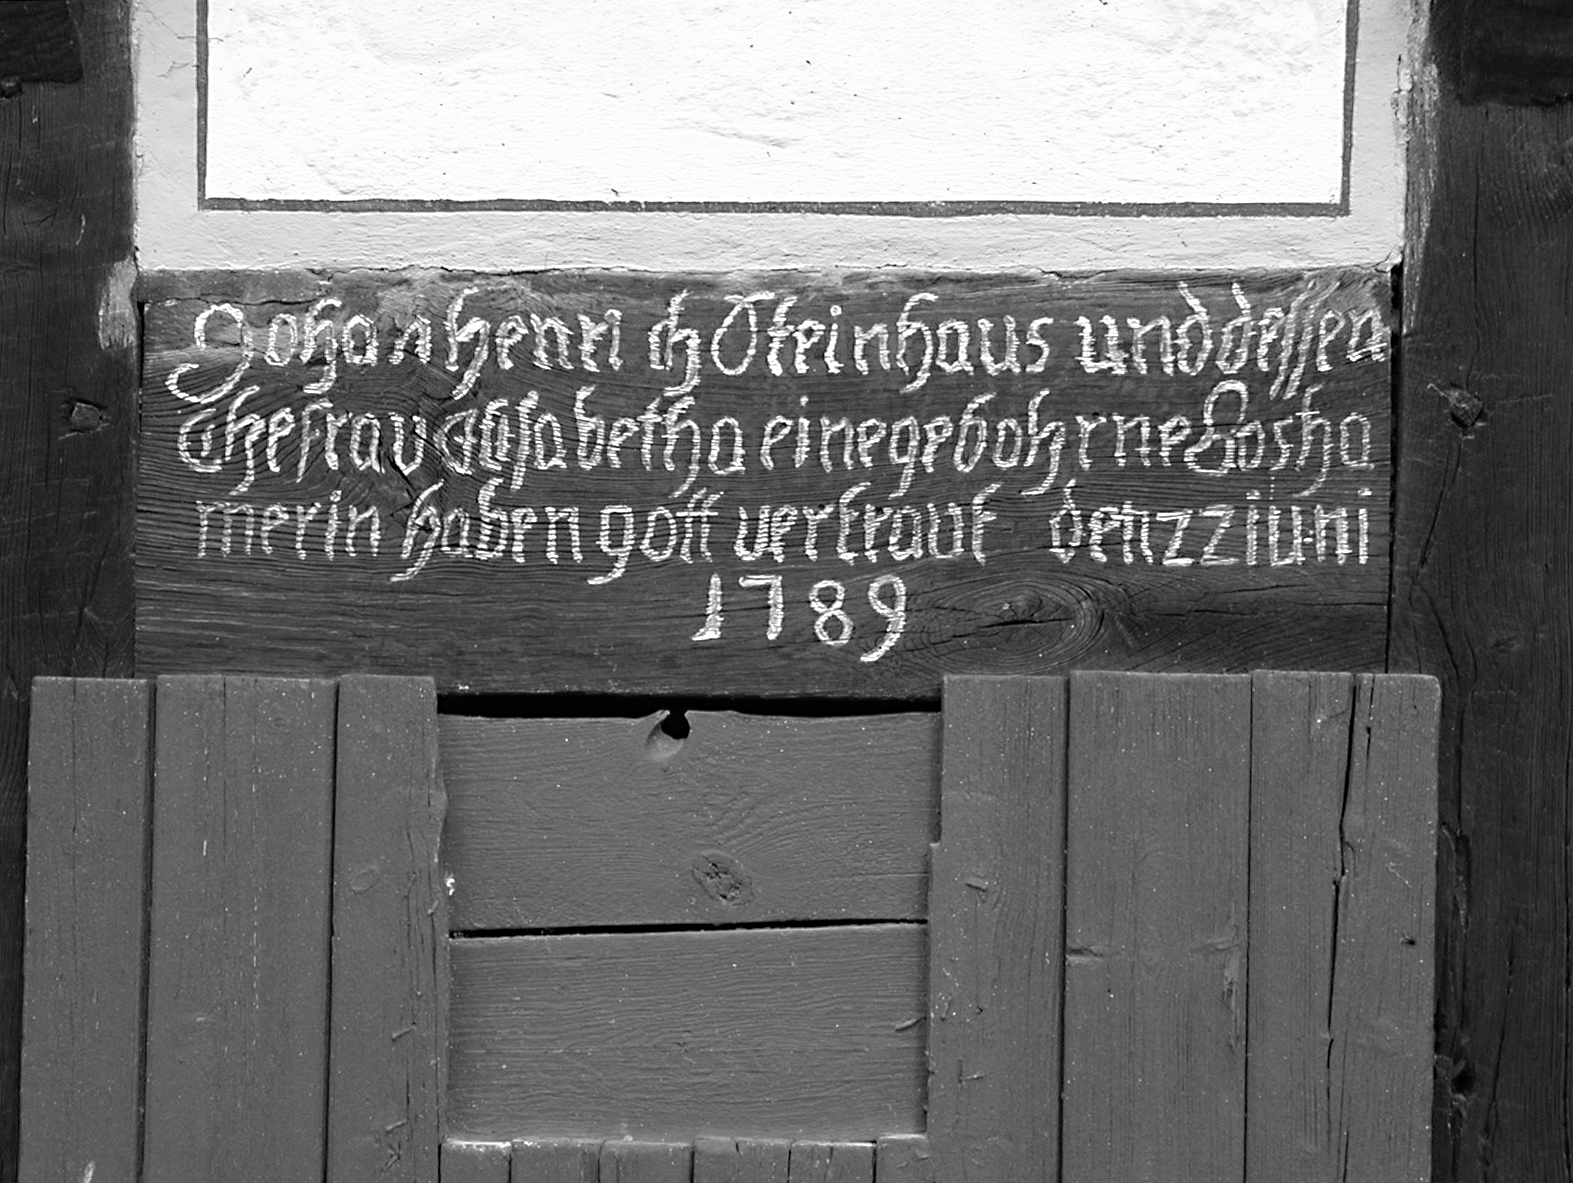 Johan henri ch Steinhaus und dessen
ehefrau elisabetha eine gebohrne Bosha
merin haben gott vertraut den 22 iuni
1789